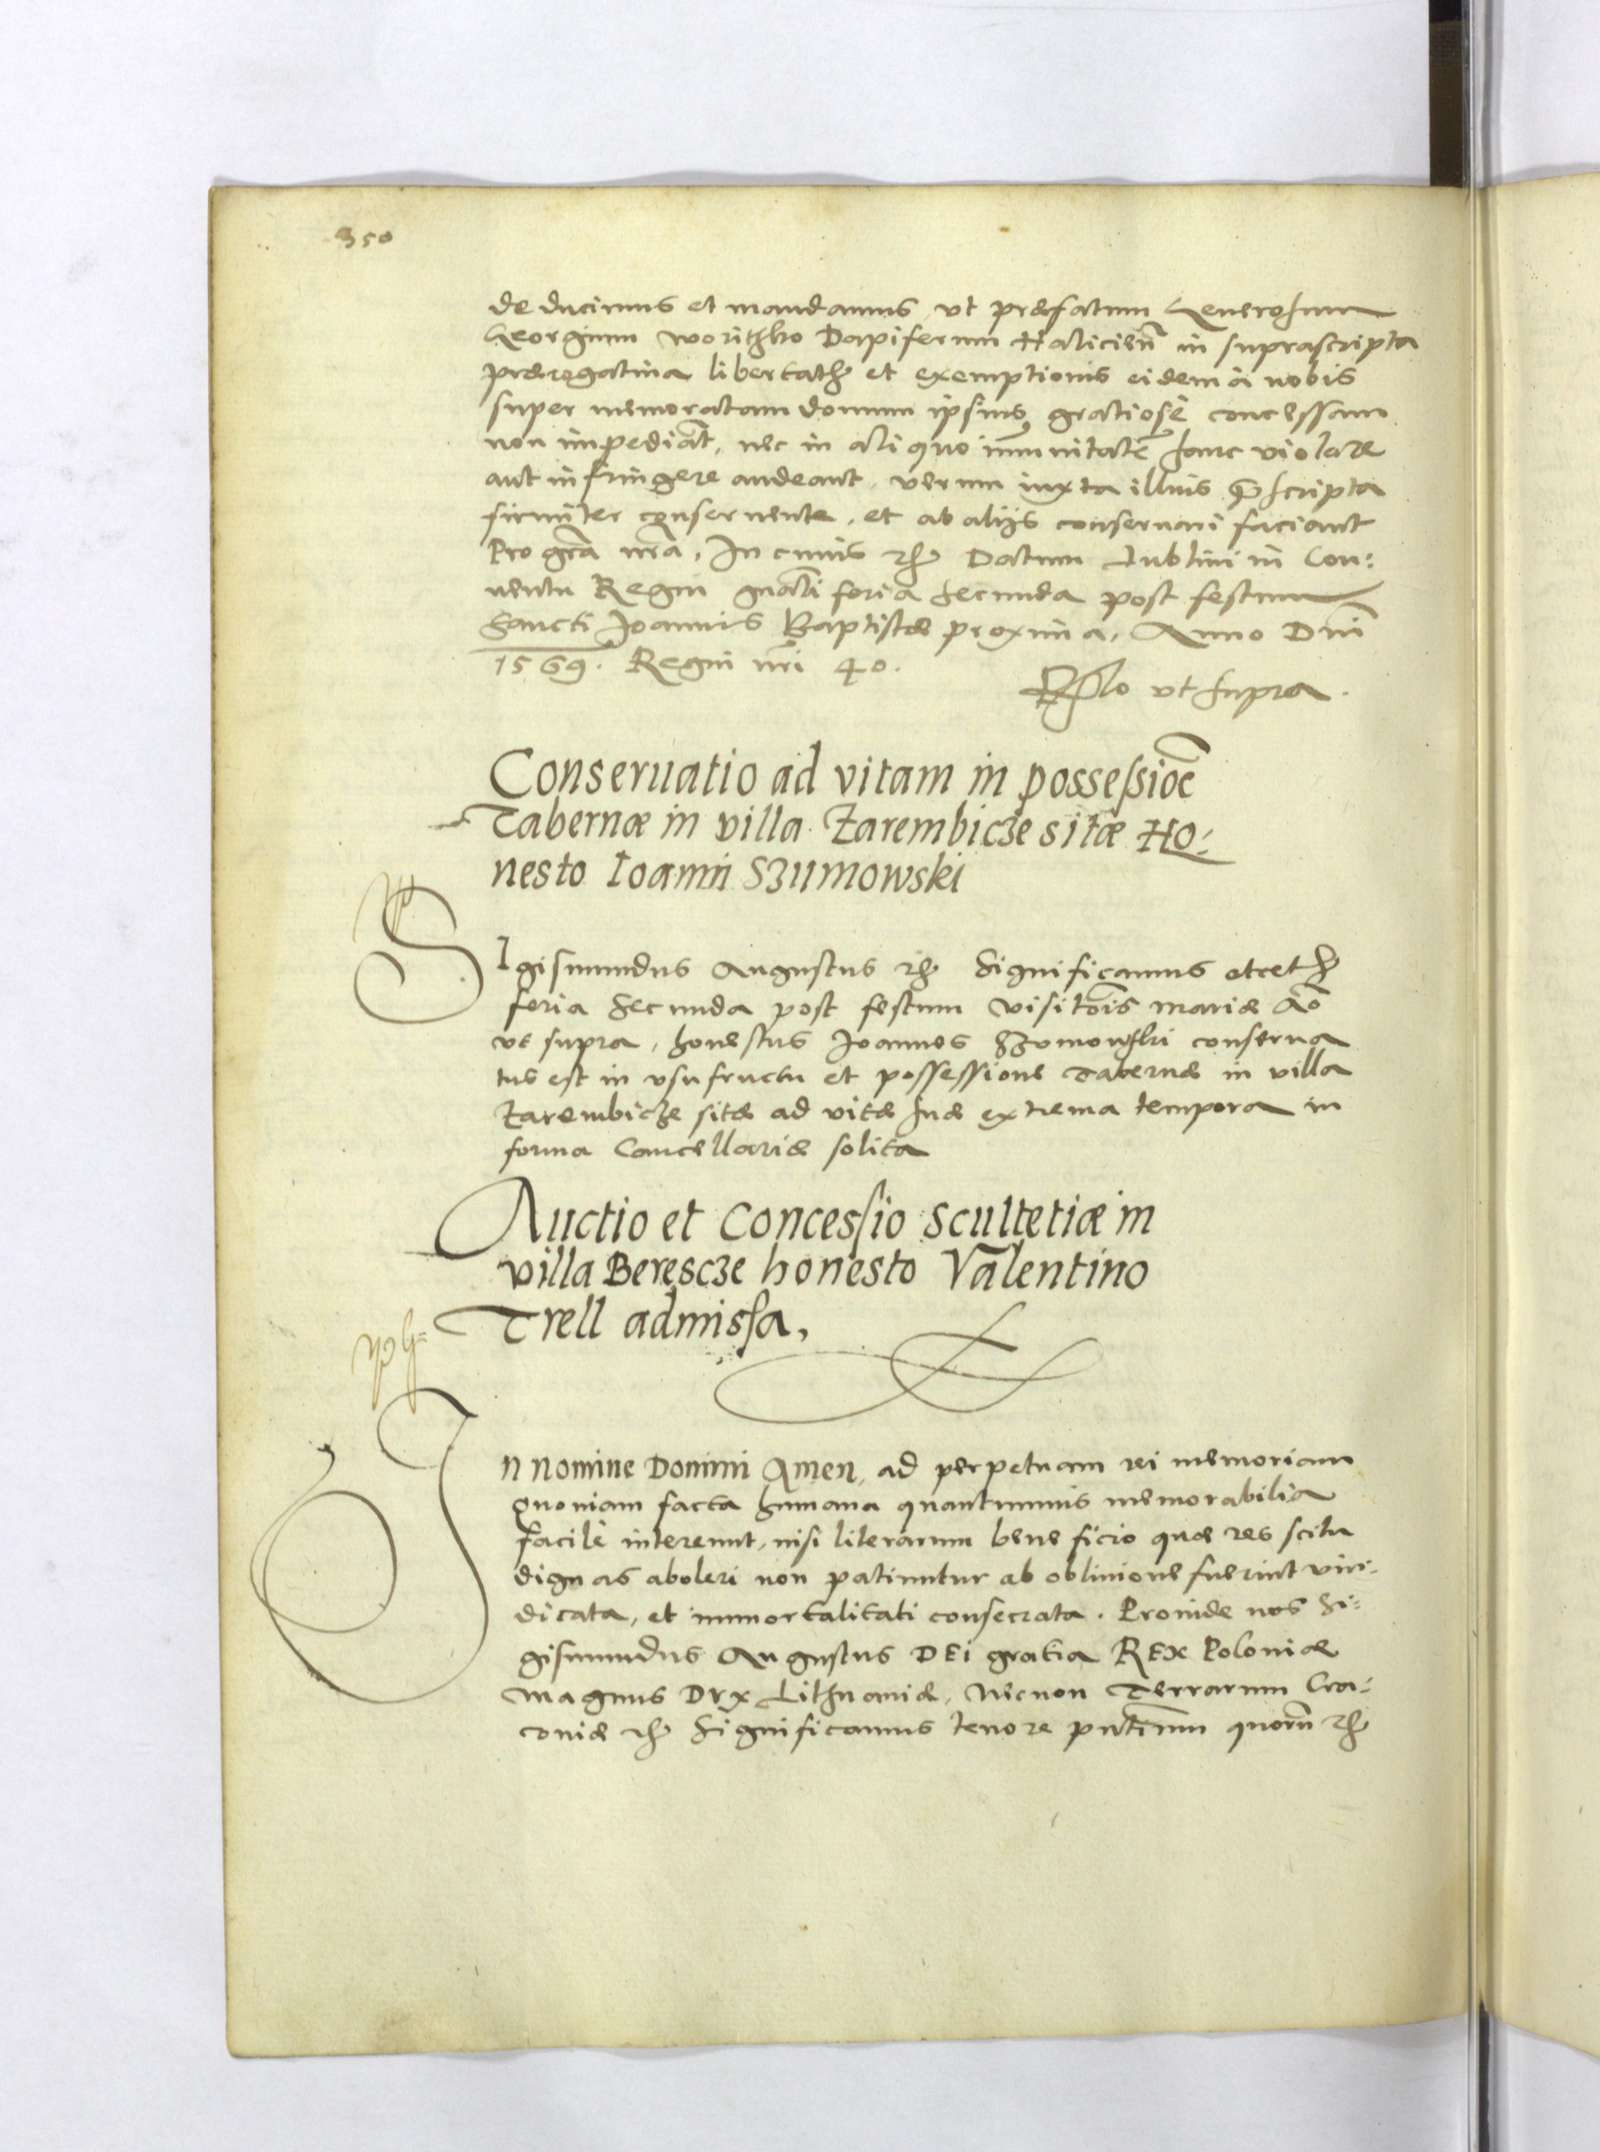 350
deducimus et mandamus, vt præfatum Generosum
Georgium Worithko Dapiferum Halicień in suprascripta
prærogatiua libertatis et exemptionis eidem à nobis
super memoratam domum ipsius gratiosè concessam
non impediāt, nec in aliquo im̄unitatē hanc violare
aut infringere audeant, verum iuxta illius præscripta
firmiter conseruent, et ab alijs conseruari faciant
Pro grā nrā, In cuius rei Datum Lublini in Con:
uentu Regni gnāli feria secunda post festum
Sancti Joannis Baptistæ proxima, Anno Dni
1569. Regni nri 40.
Rlo vt supra.
Conseruatio ad vitam in possessiōe
Tabernæ in villa Zarembicze sitæ Ho:
nesto Ioanni Szumowski
SIgismundus Augustus etc Significamus etcetc
feria secunda post festum visitōis Mariæ Aō
vt supra, honestus Joannes Szumowski conserua
tus est in vsufructu et possessione Tabernæ in villa
Zarembicze sitæ ad vitæ suæ extrema tempora in
forma Cancellariæ solita
Auctio et Concessio Scultetiæ in
villa Berescze honesto Valentino
Trell admissa,
In Nomine Domini Amen, ad perpetuam rei memoriam
Quoniam facta humana quantumuis memorabilia
facilè intereunt, nisi literarum beneficio quæ res scitu
dignas aboleri non patiuntur ab obliuione fuerint vin:
dicata, et immortalitati consecrata. Proinde nos Si:
gismundus Augustus DEi gratia REx Poloniæ
Magnus Dux Lithuaniæ, Necnon Terrarum Cra:
coniæ etc Significamus tenore pntium quorū etc